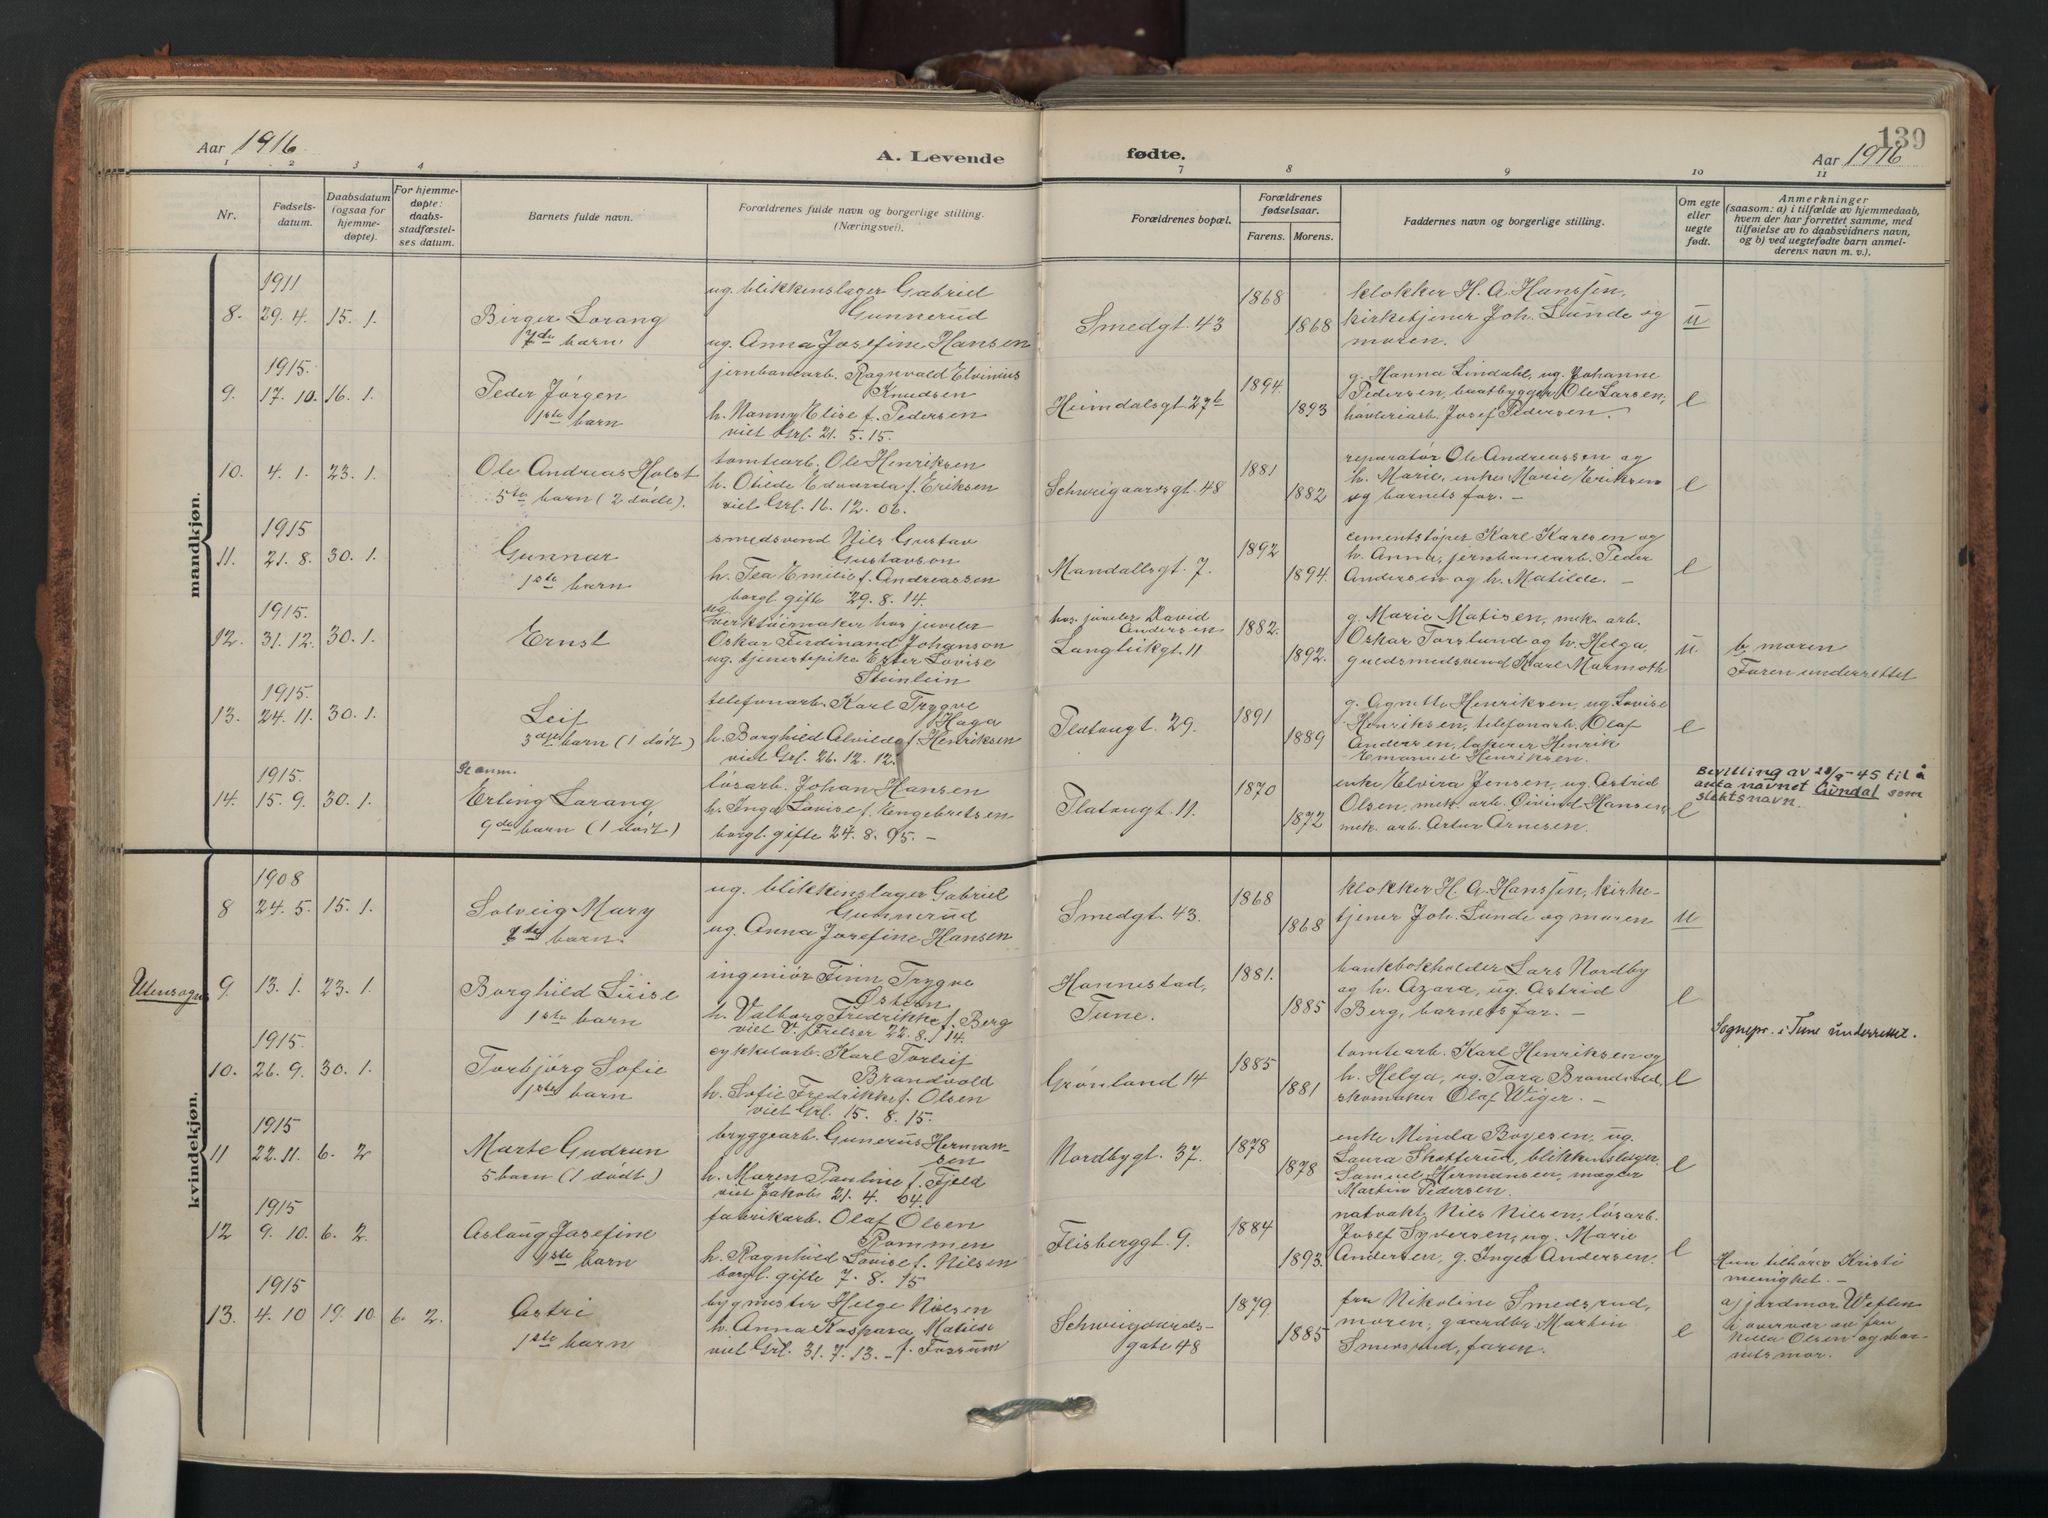 139
Aar 1916
A. Levende
fødte.
Aar 1916
1 2 3 4 7 8 9 10 11
Nr.
Fødsels-
datum.
Daabsdatum
(ogsaa for
hjemme-
døpte).
For hjemme-
døpte:
daabs-
stadfæstel-
ses datum.
Barnets fulde navn.
Forældrenes fulde navn og borgerlige stilling.
(Næringsvei).
Forældrenes bopæl.
Forældrenes
fødselsaar.
Farens. Morens.
Faddernes navn og borgerlige stilling.
Om egte
eller
uegte
født.
Anmerkninger
(saasom: a) i tilfælde av hjemmedaab,
hvem der har forrettet samme, med
tilføielse av to daabsvidners navn,
og b) ved uegtefødte barn anmel-
derens navn m. v.).
mandkjøn.
1911
8. 29. 4. 15. 1.
Birger Lorang
7de barn.
ug. blikkenslager Gabriel
Gunnerud
ug. Anna Josefine Hansen
Smedgt. 43
1868
1868
klokker H. A. Hanssen,
kirketjener Joh. Lunde og
moren.
u
1915.
9. 17. 10. 16. 1.
Peder Jørgen
1ste barn
jernbanearb. Ragnvald Elvinius
Knudsen
h. Nanny Elise f. Pedersen
viet Grl. 21. 5. 15.
Heimdalsgt. 27b
1894.
1893
g. Hanna Lindahl, ug. Johanne
Pedersen, baatbygger Ole Larsen,
Josef Pedersen.
e
10. 4. 1. 23. 1.
Ole Andreas Holst
5te barn (2 døde).
tomtearb. Ole Henriksen
h. Otilde Edvarda f. Eriksen
viet Grl. 16. 12. 06.
Schweigaardsgt. 48
1881
1882
reparatør Ole Andreassen og
h. Marie, enke Marie Eriksen
og barnets far. –
e
1915
11. 21. 8. 30. 1.
Gunnar
1ste barn
smedsvend Nils Gustav
Gustavson
h. Tea Emilie f. Andreassen
borgl. gifte 29. 8. 14.
Mandallsgt. 7.
1892
1894.
cementstøper Karl Karlsen og
h. Anna, jernbanearb. Peder
Andersen og h. Matilde. –
e
1915.
12. 31. 12. 30. 1.
Ernst
ug
verktøimaker hos juveler
Oskar Ferdinand Johanson
ug. tjenestepike Ester Lovise
Stenlein
hos juveler David
Andersen
Langleikgt. 11
1882.
1892.
g. Marie Matisen, mek. arb.
Oskar Torslund og h. Helga,
guldsmedsvend Karl Marmoth
u.
b, moren
Faren underrettet
1915.
13. 24. 11. 30. 1.
Leif
3dje barn (1 dødt)
telefonarb. Karl Trygve
Haga
h. Borghild Alvilde f. Henriksen
viet Grl. 26. 12. 12.
Platougt. 29.
1891
1889
g. Agnette Henriksen, ug. Lovise
Henriksen, telefonarb. Olaf
Andersen, lakerer Henrik
Emanuel Henriksen.
e
1915.
14. 15. 9. 30. 1.
Erling Lorang
9de barn (1 dødt)
løsarb. Johan Hansen
h. Inga Lovise f. Engebretsen
borgl. gifte 24. 8. 95. –
Platougt. 11.
1870
1872
enke Elvira Jensen, ug. Astrid
Olsen, mek. arb. Øivind Hansen,
mek. arb. Artur Arnesen.
e
Bevilling av 28/8-45 til å
anta navnet Gundal som
slektsnavn.
kvindekjøn.
1908
8 24. 5. 15. 1.
Solveig Mary
6de barn.
ug. blikkinslager Gabriel
Gunnerud
ug. Anna Josefine Hansen
Smedgt. 43.
1868
1868
klokker H. A. Hanssen, kirke-
tjener Joh. Lunde og moren
u
Utensogns 9. 13. 1. 23. 1.
Borghild Luise
1ste barn
ingeniør Finn Trygve
Østern
h. Valborg Fredrikke f. Berg
viet V. Frelser 22. 8. 14.
Hannestad,
Tune.
1881.
1885
bankbokholder Lars Nordby
og h. Azora, ug. Astrid
Berg, barnets far. –
e
Sognepr. i Tune underrettet.
1915.
10. 26. 9. 30. 1.
Torbjørg Sofie
1ste barn
cykkelarb. Karl Torleif
Brandvold
h. Sofie Fredrikke f. Olsen
viet Grl. 15. 8. 15.
Grønland 14
1885
1881
tomtearb. Karl Henriksen og
h. Helga, ug. Tora Brandvold,
skomaker Olaf Wiger. –
e
1915
11 22. 11. 6. 2
Marte Gudrun
5 barn (1 dødt.)
bryggearb. Gunerius Herman-
sen
h. Maren Pauline f. Fjeld
viet Jakobs 21. 4. 04.
Nordbygt. 37.
1878
1878
enke Minda Boyesen, ug.
Laura Skotterud, blikkenslager
Samuel Hermansen, mægler
Martin Pedersen.
e
1915
12 9. 10. 6. 2.
Aslaug Josefine
1ste barn
fabrikarb. Olaf Olsen
Rommen
h. Ragnhild Lovise f. Nilsen
borgl. gifte 7. 8. 15
Flisberggt. 9.
1884
1893.
natvakt Nils Nilsen, løsarb.
Josef Syversen, ug. Marie
Andersen, g. Inger Andersen.
e
Hun tilhører Kristi
menighet. –
1915
13. 4. 10 19. 10. 6. 2.
Astri
1ste barn
bygmester Helge Nielsen
h. Anna Kaspara Matilde
viet Grl. 31. 7. 13. – f. Fossum
Schweigaards-
gate 48
1879.
1885
fru Nikoline Smedsrud,
moren, gaardbr. Martin
Smersrud, faren.
e
a) jordmor Weflen
i overvær av fru
Olsen og bar-
nets mor.